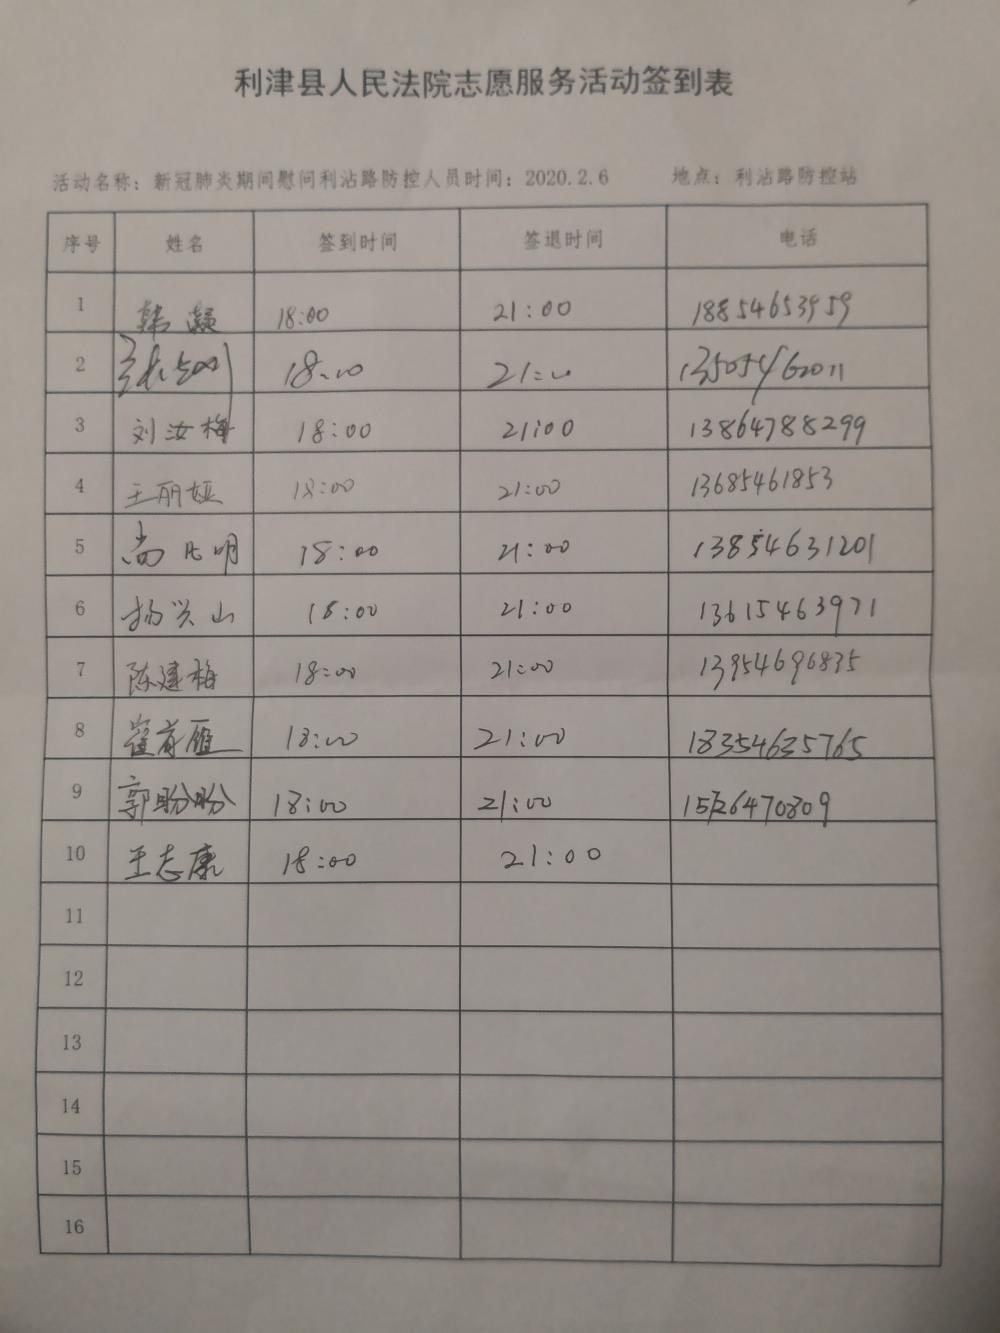 利津县人民法院志愿服务活动签到表
活动名称：新冠肺炎期间慰问利沾路防控人员时间：2020.2.6 地点：利沾路防控站
序号 姓名 签到时间 签退时间 电话
1 韩凝 18:00 21:00 18854653959
2 18:00 21:00 13505462011
3 刘汝梅 18:00 21:00 13864788299
4 王丽娅 18:00 21:00 13685461853
5 尚凡明 18:00 21:00 13854631201
6 杨兴山 18:00 21:00 13615463971
7 陈建梅 18:00 21:00 13954696835
8 18:00 21:00 18354635765
9 郭盼盼 18:00 21:00
10 王志康 18:00 21:00
11
12
13
14
15
16